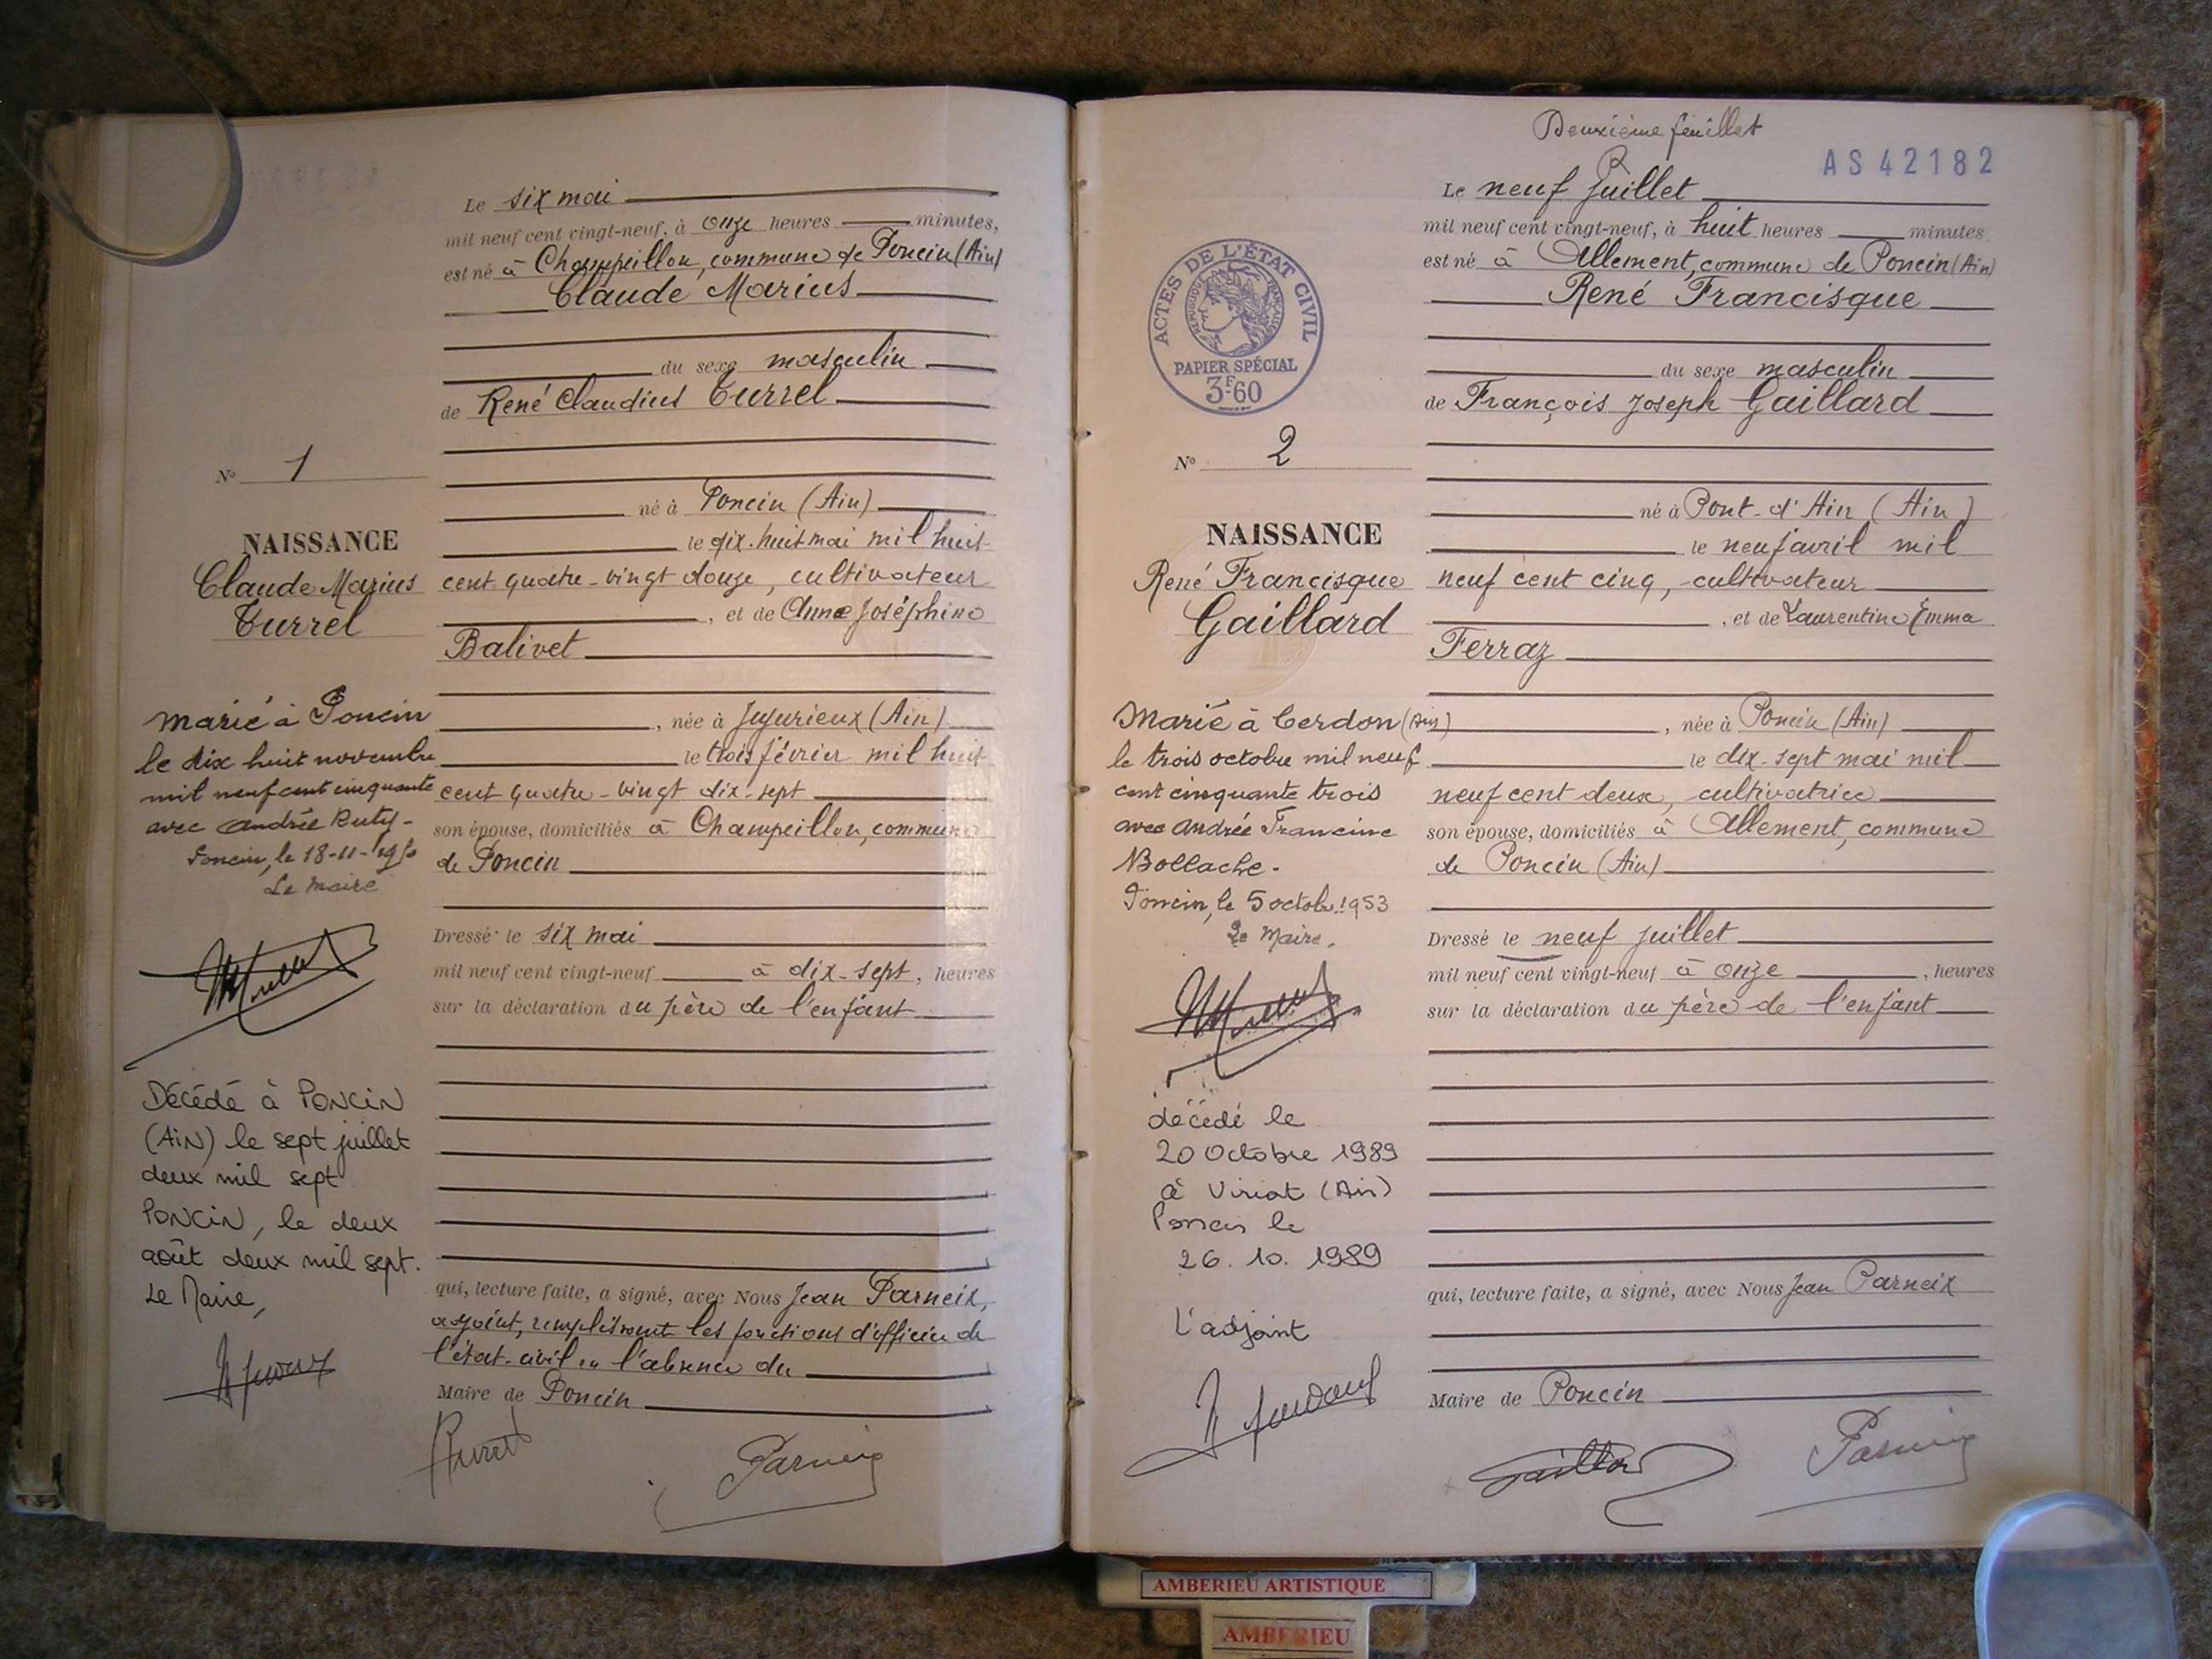 Le six mai
mil neuf cent vingt-neuf, à onze heures minutes,
est né à Champeillon, commune de Poncin (Ain)
Claude Marius
du sexe masculin
de René Claudius Turrel
né à Poncin (Ain)
le dix-huit mai mil huit
cent quatre-vingt douze, cultivateur
, et de Anna Joséphine
Balivet
, née à Jujurieux (Ain)
le trois février mil huit
cent quatre-vingt dix-sept
son épouse, domiciliés à Champeillon, commune
de Poncin
Dressé le six mai
mil neuf cent vingt-neuf à dix-sept, heures
sur la déclaration du père de l'enfant
qui, lecture faite, a signé, avec Nous Jean Parneix,
adjoint, remplissant les fonctions d'officier de
l'état-civil en l'absence du
Maire de Poncin
Parneix
N° 1
NAISSANCE
Claude Marius
Turrel
Marié à Poncin
le dix huit novembre
mil neuf cent cinquante
avec Andrée Ruty-
Poncin, le 18-11-1950
Le Maire
Décédé à PONCIN
(AIN) le sept juillet
deux mil sept
PONCIN, le deux
août deux mil sept.
Le Maire,
Deuxième feuillet
AS 42182
Le neuf Juillet
mil neuf cent vingt-neuf, à huit heures minutes
est né à Allement, commune de Poncin (Ain)
René Francisque
du sexe masculin
de François Joseph Gaillard
né à Pont-d'Ain (Ain)
le neuf avril mil
neuf cent cinq, cultivateur
, et de Laurentine Emma
Ferraz
, née à Poncin (Ain)
le dix-sept mai mil
neuf cent deux, cultivatrice
son épouse, domiciliés à Allement, commune
de Poncin (Ain)
Dressé le neuf juillet
mil neuf cent vingt-neuf à onze, heures
sur la déclaration du père de l'enfant
qui, lecture faite, a signé, avec Nous Jean Parneix
Maire de Poncin
Gaillard
Parneix
ACTES DE L'ÉTAT CIVIL
RÉPUBLIQUE FRANÇAISE
PAPIER SPÉCIAL
3F60
N° 2
NAISSANCE
René Francisque
Gaillard
Marié à Cerdon (Ain)
le trois octobre mil neuf
cent cinquante trois
avec Andrée Francine
Bollache-
Poncin, le 5 octobre 1953
Le Maire.
décédé le
20 Octobre 1989
à Viriat (Ain)
Poncin le
26. 10. 1989
L'adjoint
AMBERIEU ARTISTIQUE
AMBERIEU